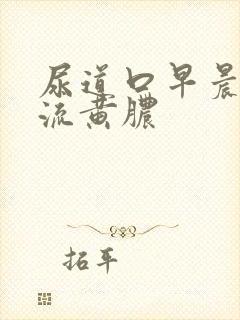 尿道口早晨
流黄脓
拓平